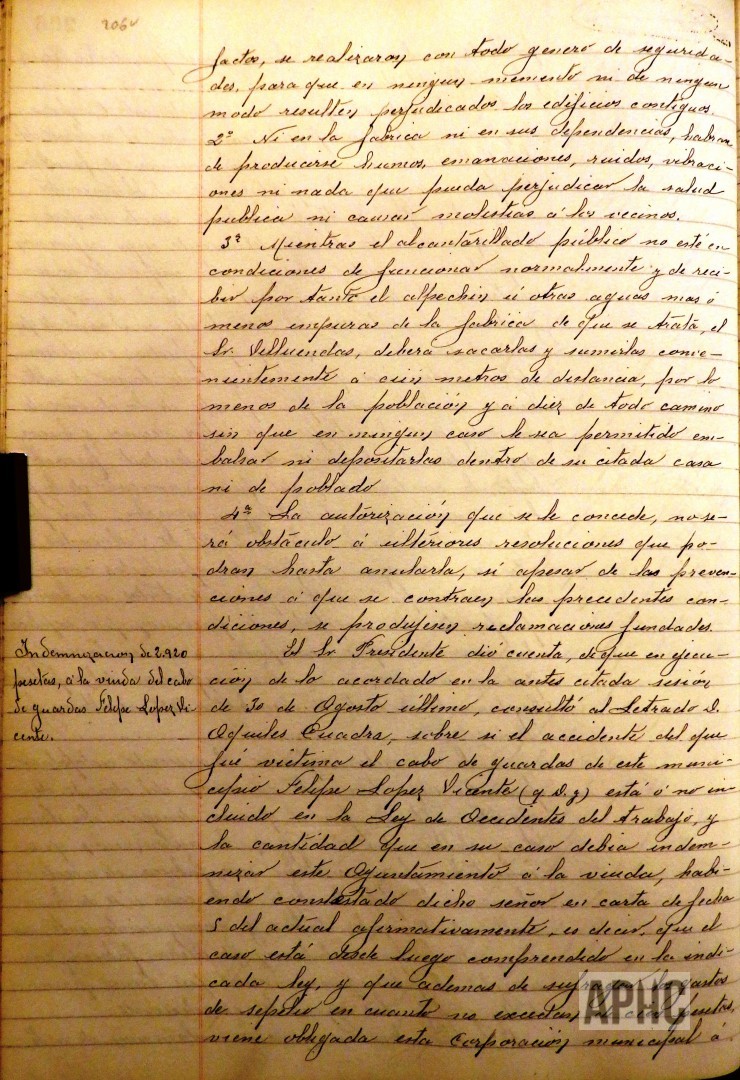 206v
factos, se realizaran con todo genero de segurida-
des, para que en ningun momento ni de ningun
modo resulten perjudicados los edificios contiguos.
2ª Ni en la fabrica ni en sus dependencias, habran
de producirse humos, emanaciones, ruidos, vibraci-
ones ni nada que pueda perjudicar la salud
publica ni causar molestias á los vecinos.
3ª Mientras el alcantarillado público no esté en
condiciones de funcionar normalmente y de reci-
bir por tanto el alpechin ú otras aguas mas ó
menos impuras de la fabrica de que se trata, el
Sr. Velluendas, deberá sacarlas y sumirlas conve-
nientemente á cien metros de distancia, por lo
menos de la población y á diez de todo camino
sin que en ningun caso le sea permitido em-
balsar ni depositarlas dentro de su citada casa
ni de poblado
4ª La autorización que se le concede, no se-
rá obstáculo á ulteriores resoluciones que po-
dran hasta anularla, si apesar de las preven-
ciones á que se contraen las precedentes con-
diciones, se produjesen reclamaciones fundadas.
Indemnizacion de 2.920
pesetas, á la viuda del cabo
de guardas Felipe Lopez Vi-
cente.
El Sr. Presidente dió cuenta, de que en ejecu-
ción de lo acordado en la antes citada sesión
de 30 de Agosto último, consultó al Letrado D.
Aquiles Cuadra, sobre si el accidente del que
fué víctima el cabo de guardas de este muni-
cipio Felipe Lopez Vicente (q. D. g) está ó no in-
cluido en la Ley de Accidentes del trabajo, y
la cantidad que en su caso debia indem-
nizar este Ayuntamiento á la viuda, habi-
endo contestado dicho señor en carta de fecha
5 del actual afirmativamente, es decir, que el
caso está desde luego comprendido en la indi-
cada ley, y que ademas de sufragar los gastos
de sepelio en cuanto no excedan de cien pesetas,
viene obligada esta Corporación municipal á
APHC